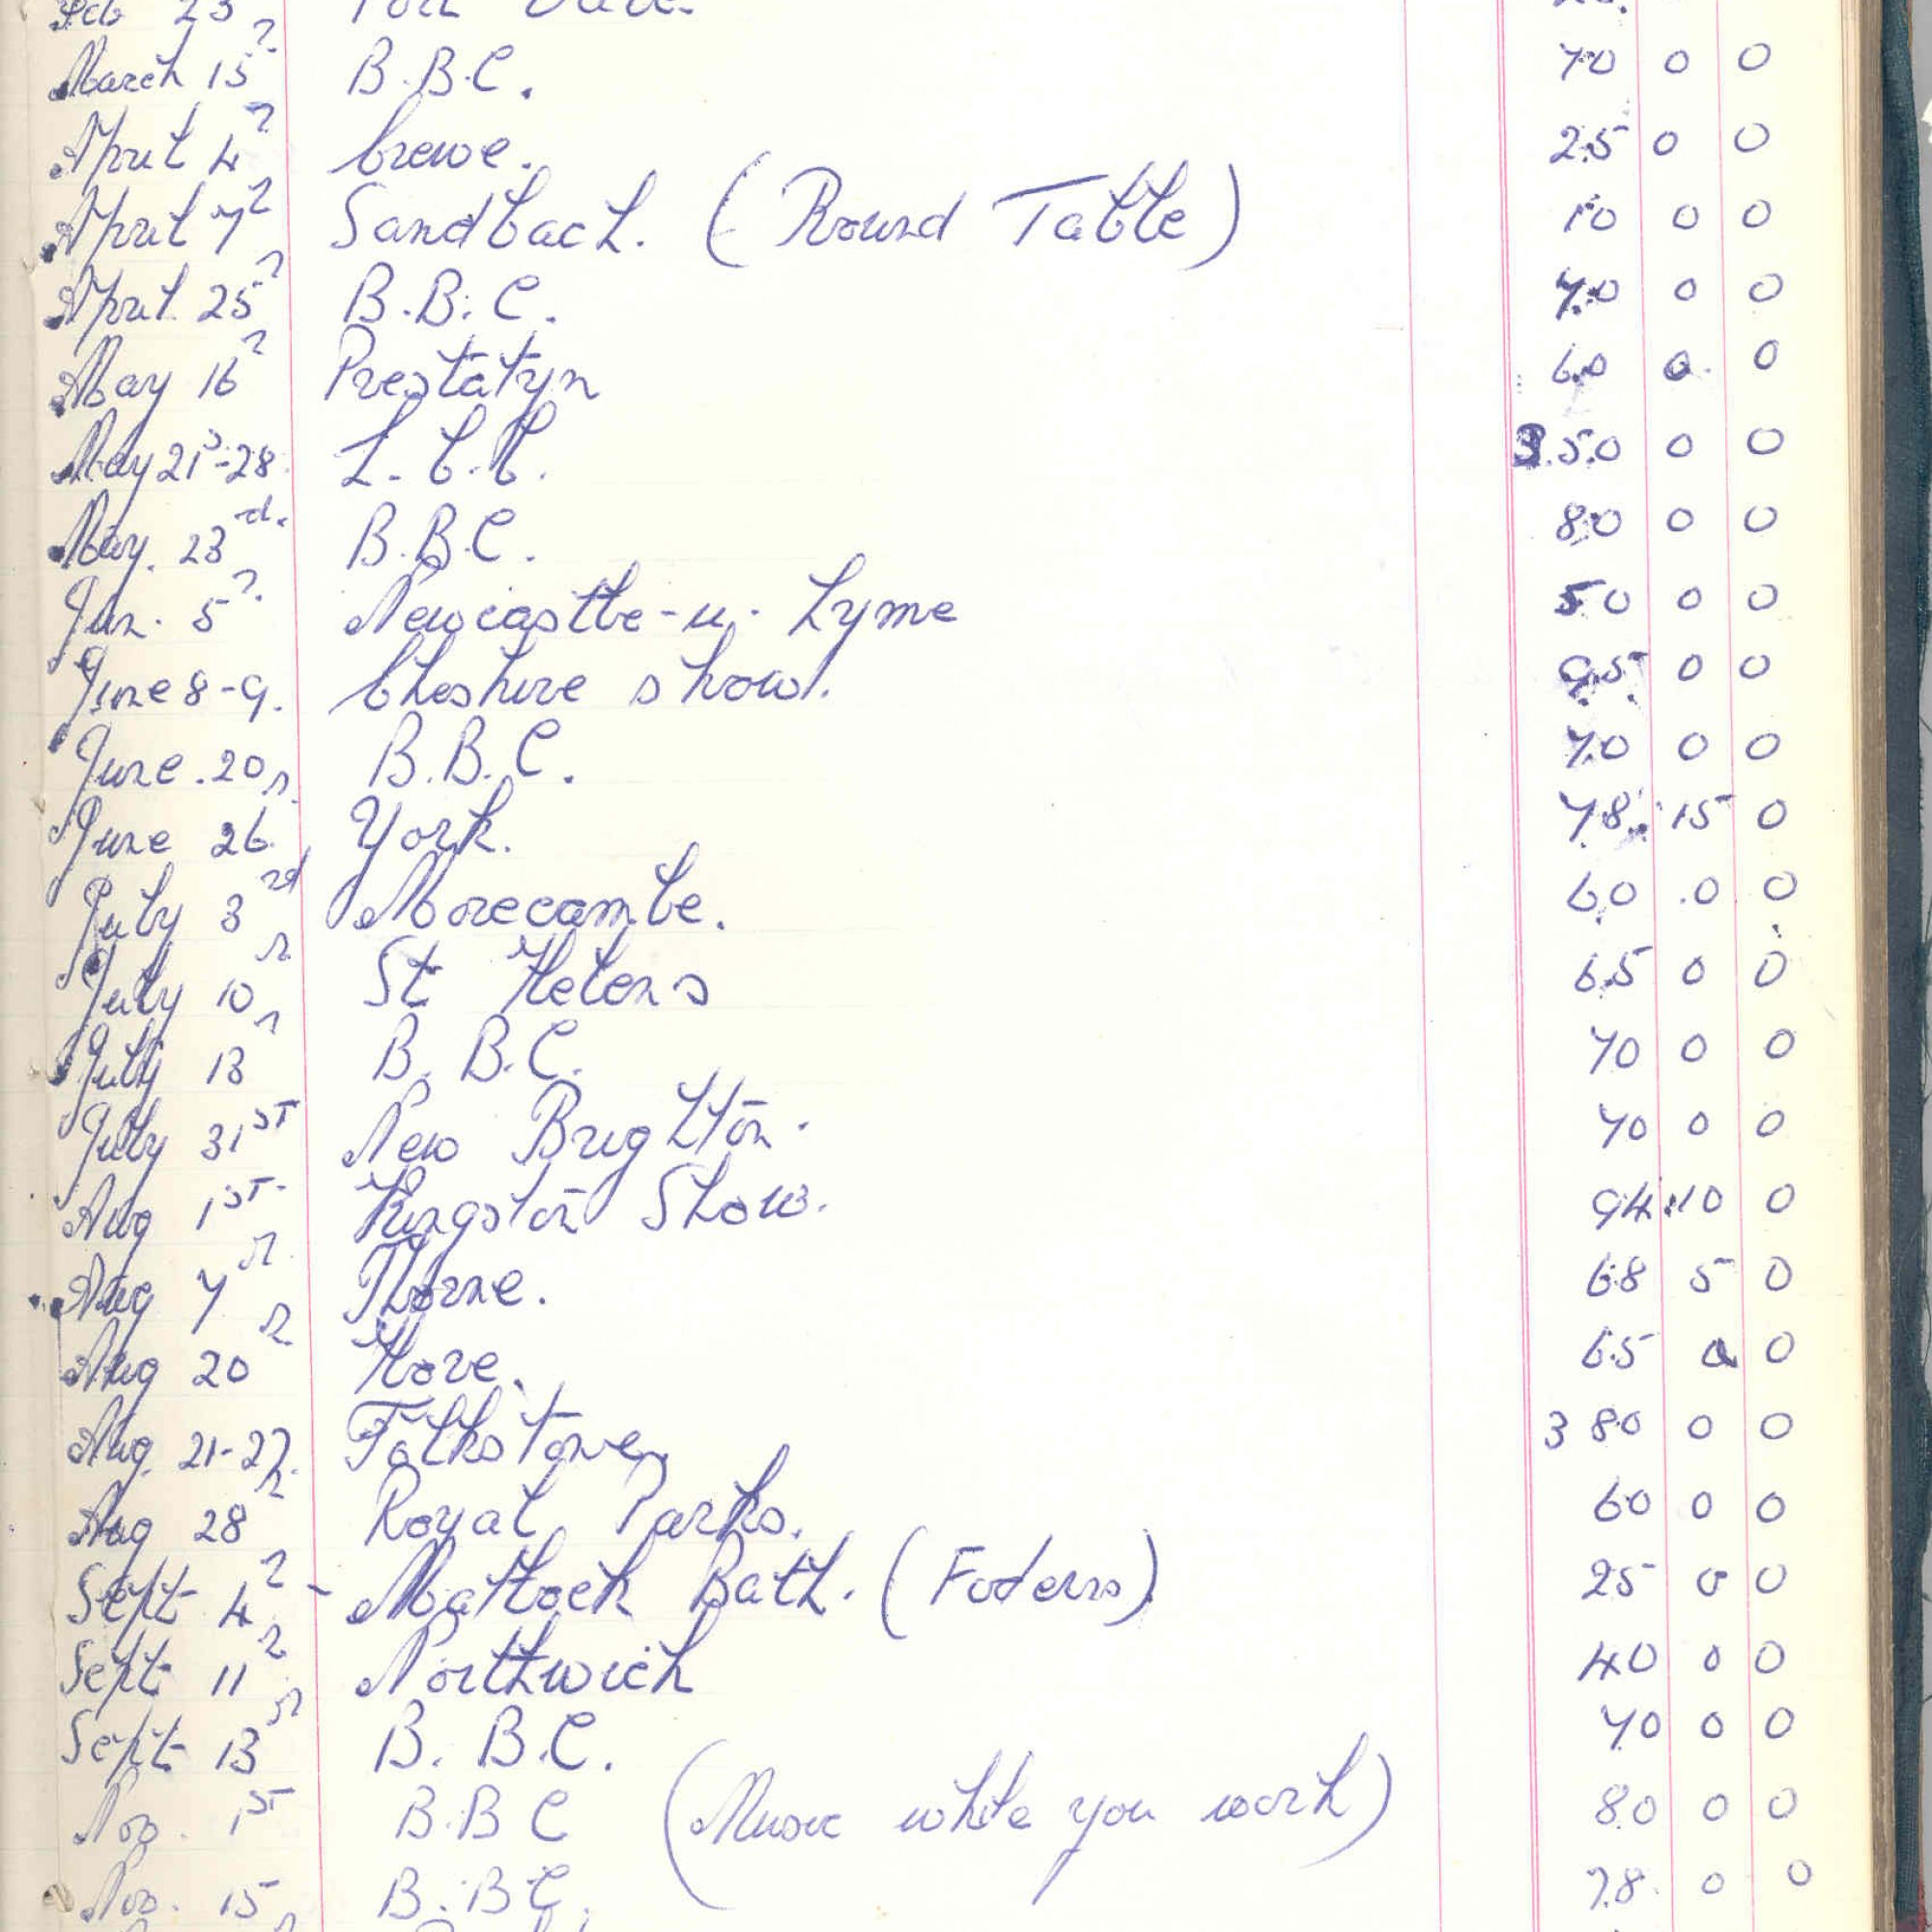 Feb 23
March 15 B.B.C. 70 0 0
April 4 Crewe. 25 0 0
April 7 Sandbach. (Round Table) 10 0 0
April 25 B.B.C. 70 0 0
May 16 Prestatyn 60 0 0
May 21-28. L.C.C. 350 0 0
May. 23rd. B.B.C. 80 0 0
Jun. 5 Newcastle-u-Lyme 50 0 0
June 8-9. Cheshire show. 95 0 0
June. 20 B.B.C. 70 0 0
June 26 York. 78 15 0
July 3rd Morecambe. 60 0 0
July 10 St Helens 65 0 0
July 13 B.B.C. 70 0 0
July 31ST New Brighton. 70 0 0
Aug 1ST Kingston Show. 94 10 0
Aug 7 Thorne. 68 5 0
Aug 20 Hove. 65 0 0
Aug. 21-27. Folkstone 380 0 0
Aug 28 Royal Parks. 60 0 0
Sept 4 - Matlock Bath. (Fodens) 25 0 0
Sept 11 Northwich 40 0 0
Sept 13 B.B.C. 70 0 0
Nov. 1ST B.B C (Music while you work) 80 0 0
Nov. 15 B.B C. 78 0 0